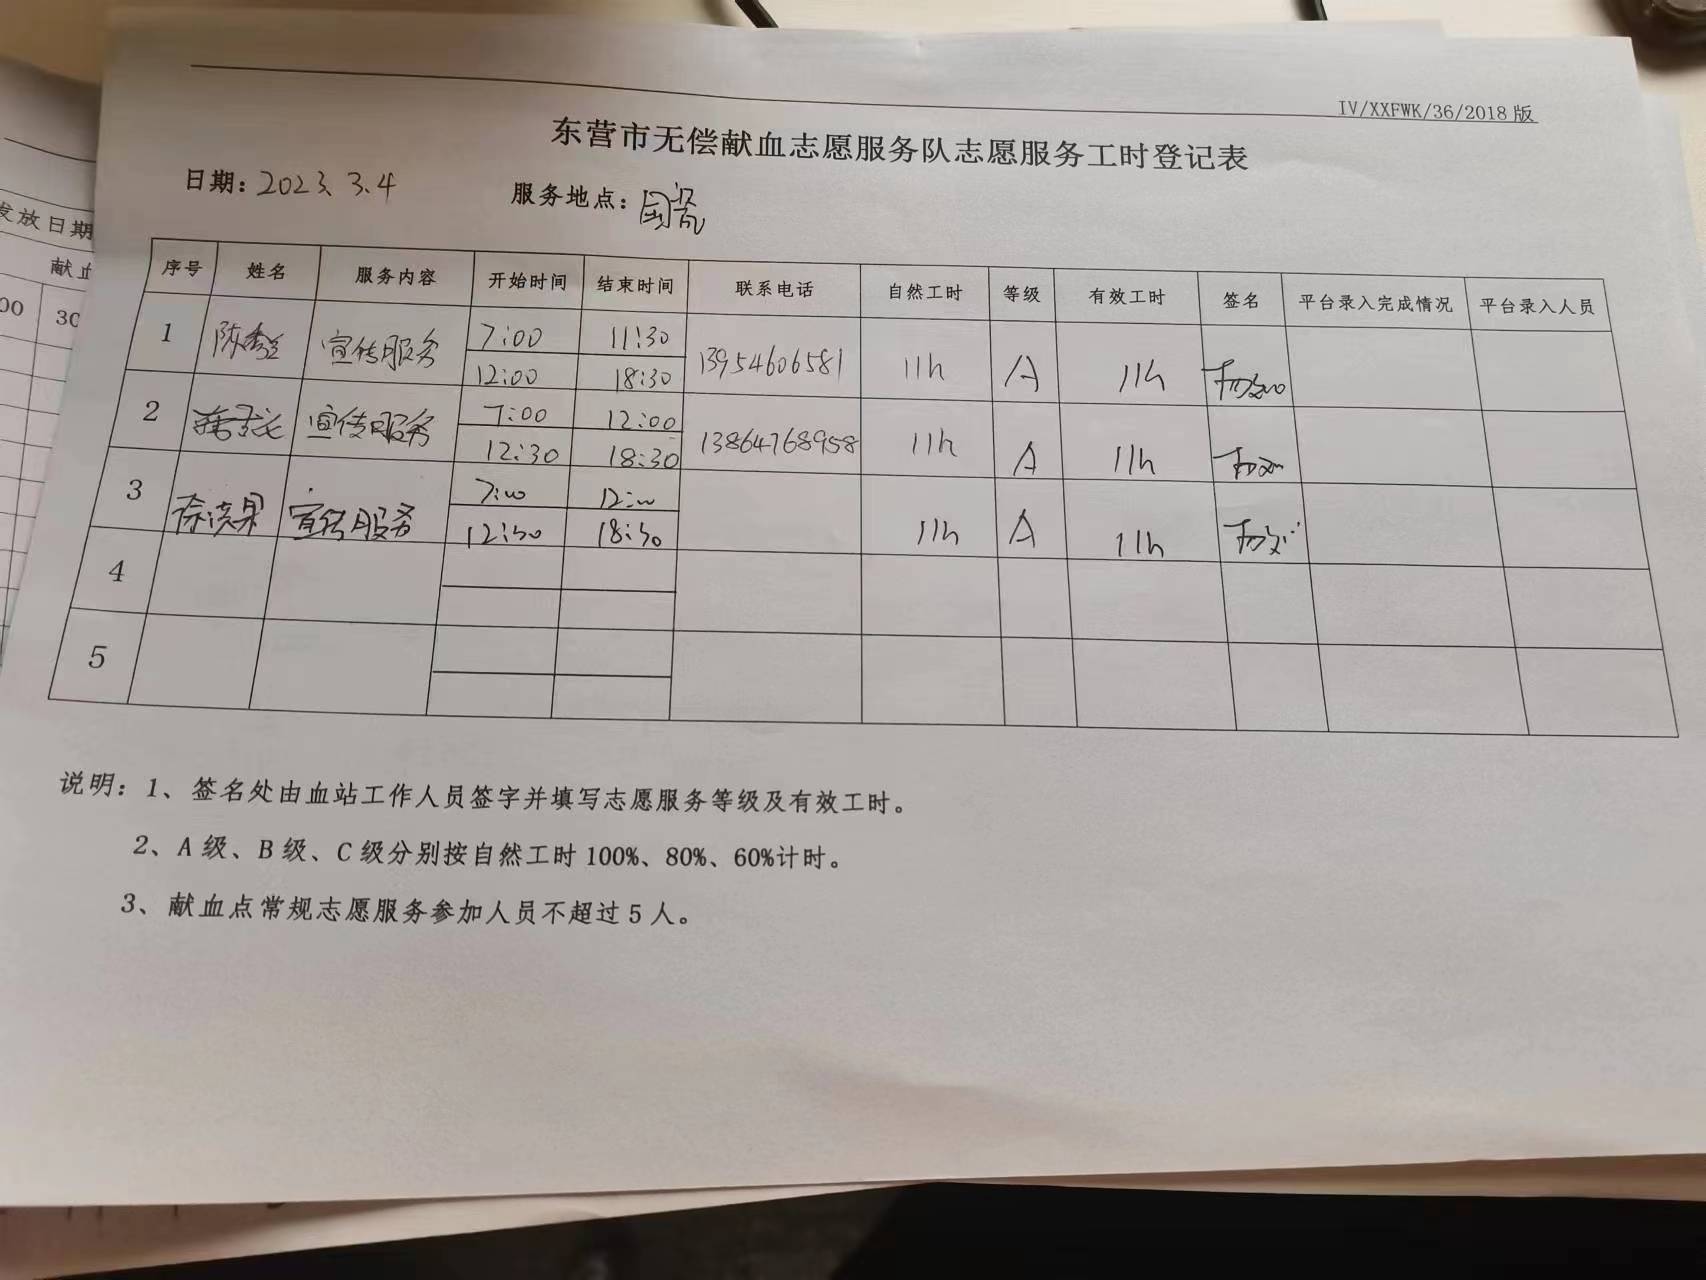 IV/XXFWK/36/2018 版
东营市无偿献血志愿服务队志愿服务工时登记表
日期: 2023.3.4 服务地点: 国瓷
序号 姓名 服务内容 开始时间 结束时间 联系电话 自然工时 等级 有效工时 签名 平台录入完成情况 平台录入人员
1 宣传服务 7:00 11:30 13954606581 11h A 11h
12:00 18:30
2 宣传服务 7:00 12:00 13864768958 11h A 11h
12:30 18:30
3 宣传服务 7:00 12:00 11h A 11h
12:30 18:30
4
5
说明: 1、签名处由血站工作人员签字并填写志愿服务等级及有效工时。
2、A 级、B 级、C 级分别按自然工时 100%、80%、60%计时。
3、献血点常规志愿服务参加人员不超过 5 人。
发放日期
献血
00 30